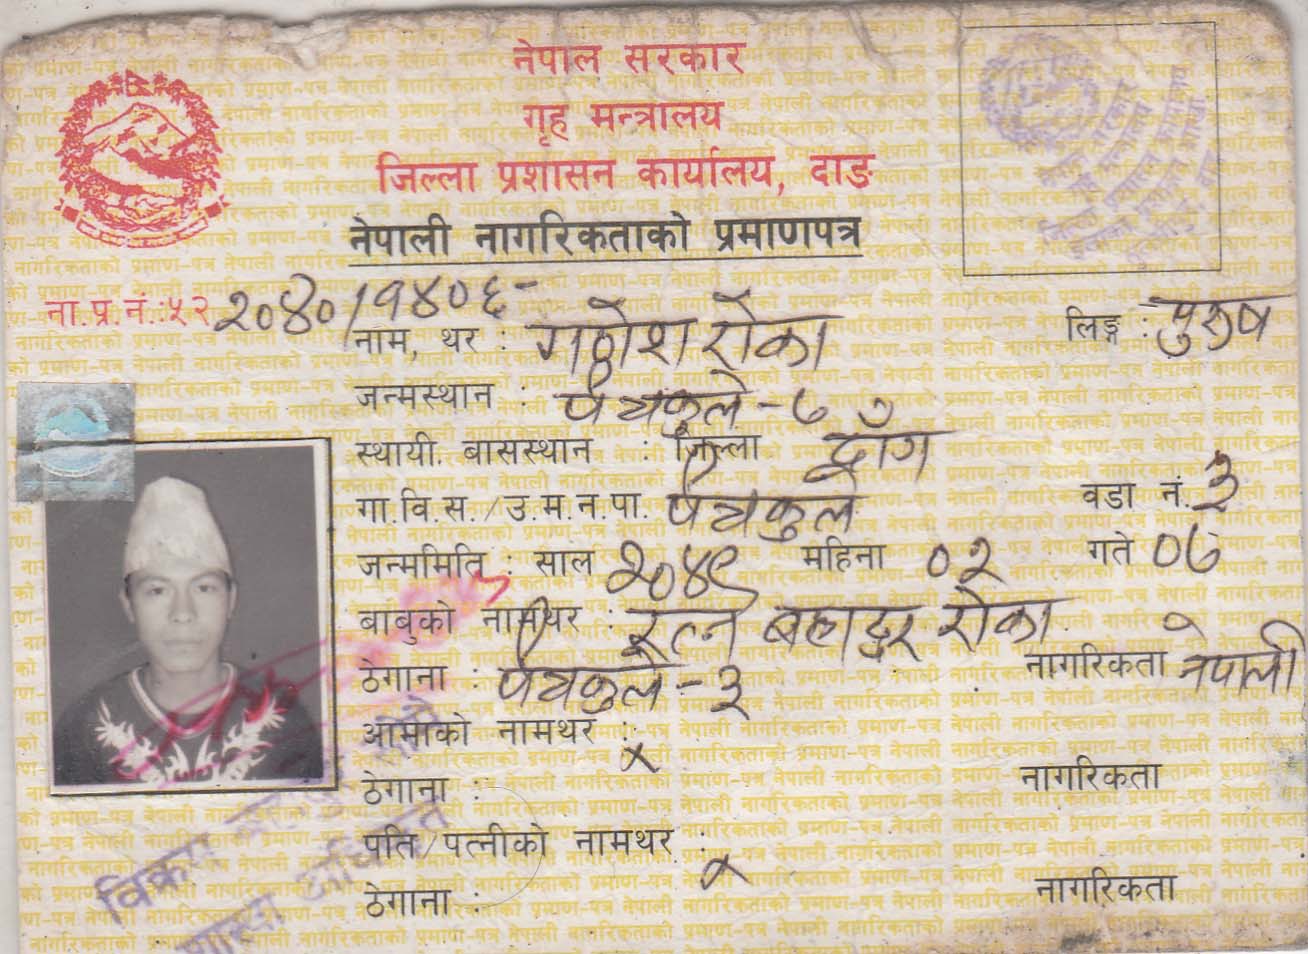 नेपाल सरकार
गृह मन्त्रालय
जिल्ला प्रशासन कार्यालय, दाङ
नेपाली नागरिकताको प्रमाणपत्र
ना.प्र.नं.:५२ २०४०/१४०६
नाम, थर : गणेश रोका लिङ्ग : पुरुष
जन्मस्थान :
स्थायी बासस्थान : जिल्ला दाँग
गा.वि.स./उ.म.न.पा. वडा नं. ३
जन्ममिति : साल २०४९ महिना ०२ गते ०७
बाबुको नामथर : रत्न बहादुर रोका
ठेगाना : नागरिकता नेपाली
आमाको नामथर : x
ठेगाना : नागरिकता
पति/पत्नीको नामथर : x
ठेगाना : नागरिकता